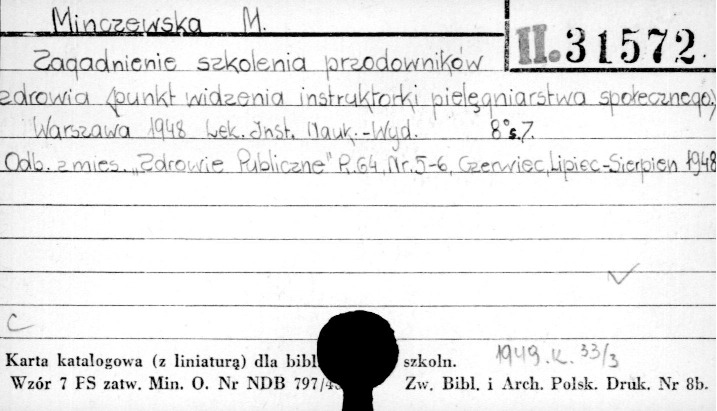 Minczewska M.
II. 31572.
Zagadnienie szkolenia przodowników
zdrowia (punkt widzenia instruktorki pielęgniarstwa społecznego.)
Warszawa 1948 Lek. Inst. Nauk.-Wyd. 8° s. 7.
Odb. z mies. „Zdrowie Publiczne" R. 64, Nr. 5-6, Czerwiec, Lipiec-Sierpien 1948
C
1949. K. 33/3
Karta katalogowa (z liniaturą) dla bibl szkoln.
Wzór 7 FS zatw. Min. O. Nr NDB 797/4 Zw. Bibl. i Arch. Polsk. Druk. Nr 8b.